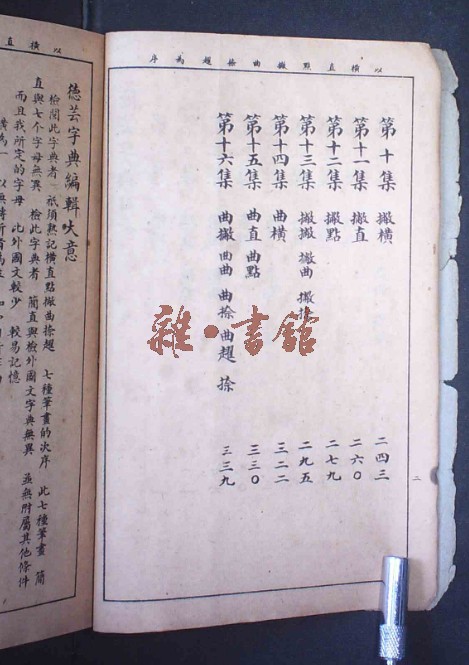 以橫直點撇曲捺趯為序
第十集 撇橫 二四三
第十一集 撇直 二六〇
第十二集 撇點 二七九
第十三集 撇撇 撇曲 撇捺 二九五
第十四集 曲橫 三二二
第十五集 曲直 曲點 三三〇
第十六集 曲撇 曲曲 曲捺 曲趯 捺 三三九
二
雜·書館
以橫直
德芸字典編輯大意
檢閱此字典者 祇須熟記橫直點撇曲捺趯 七種筆畫的次序 此七種筆畫 簡
直與七个字母無異 檢此字典者 簡直與檢外國文字典無異 並無附屬其他條件
而且我所定的字母 此外國文較少 較易記憶